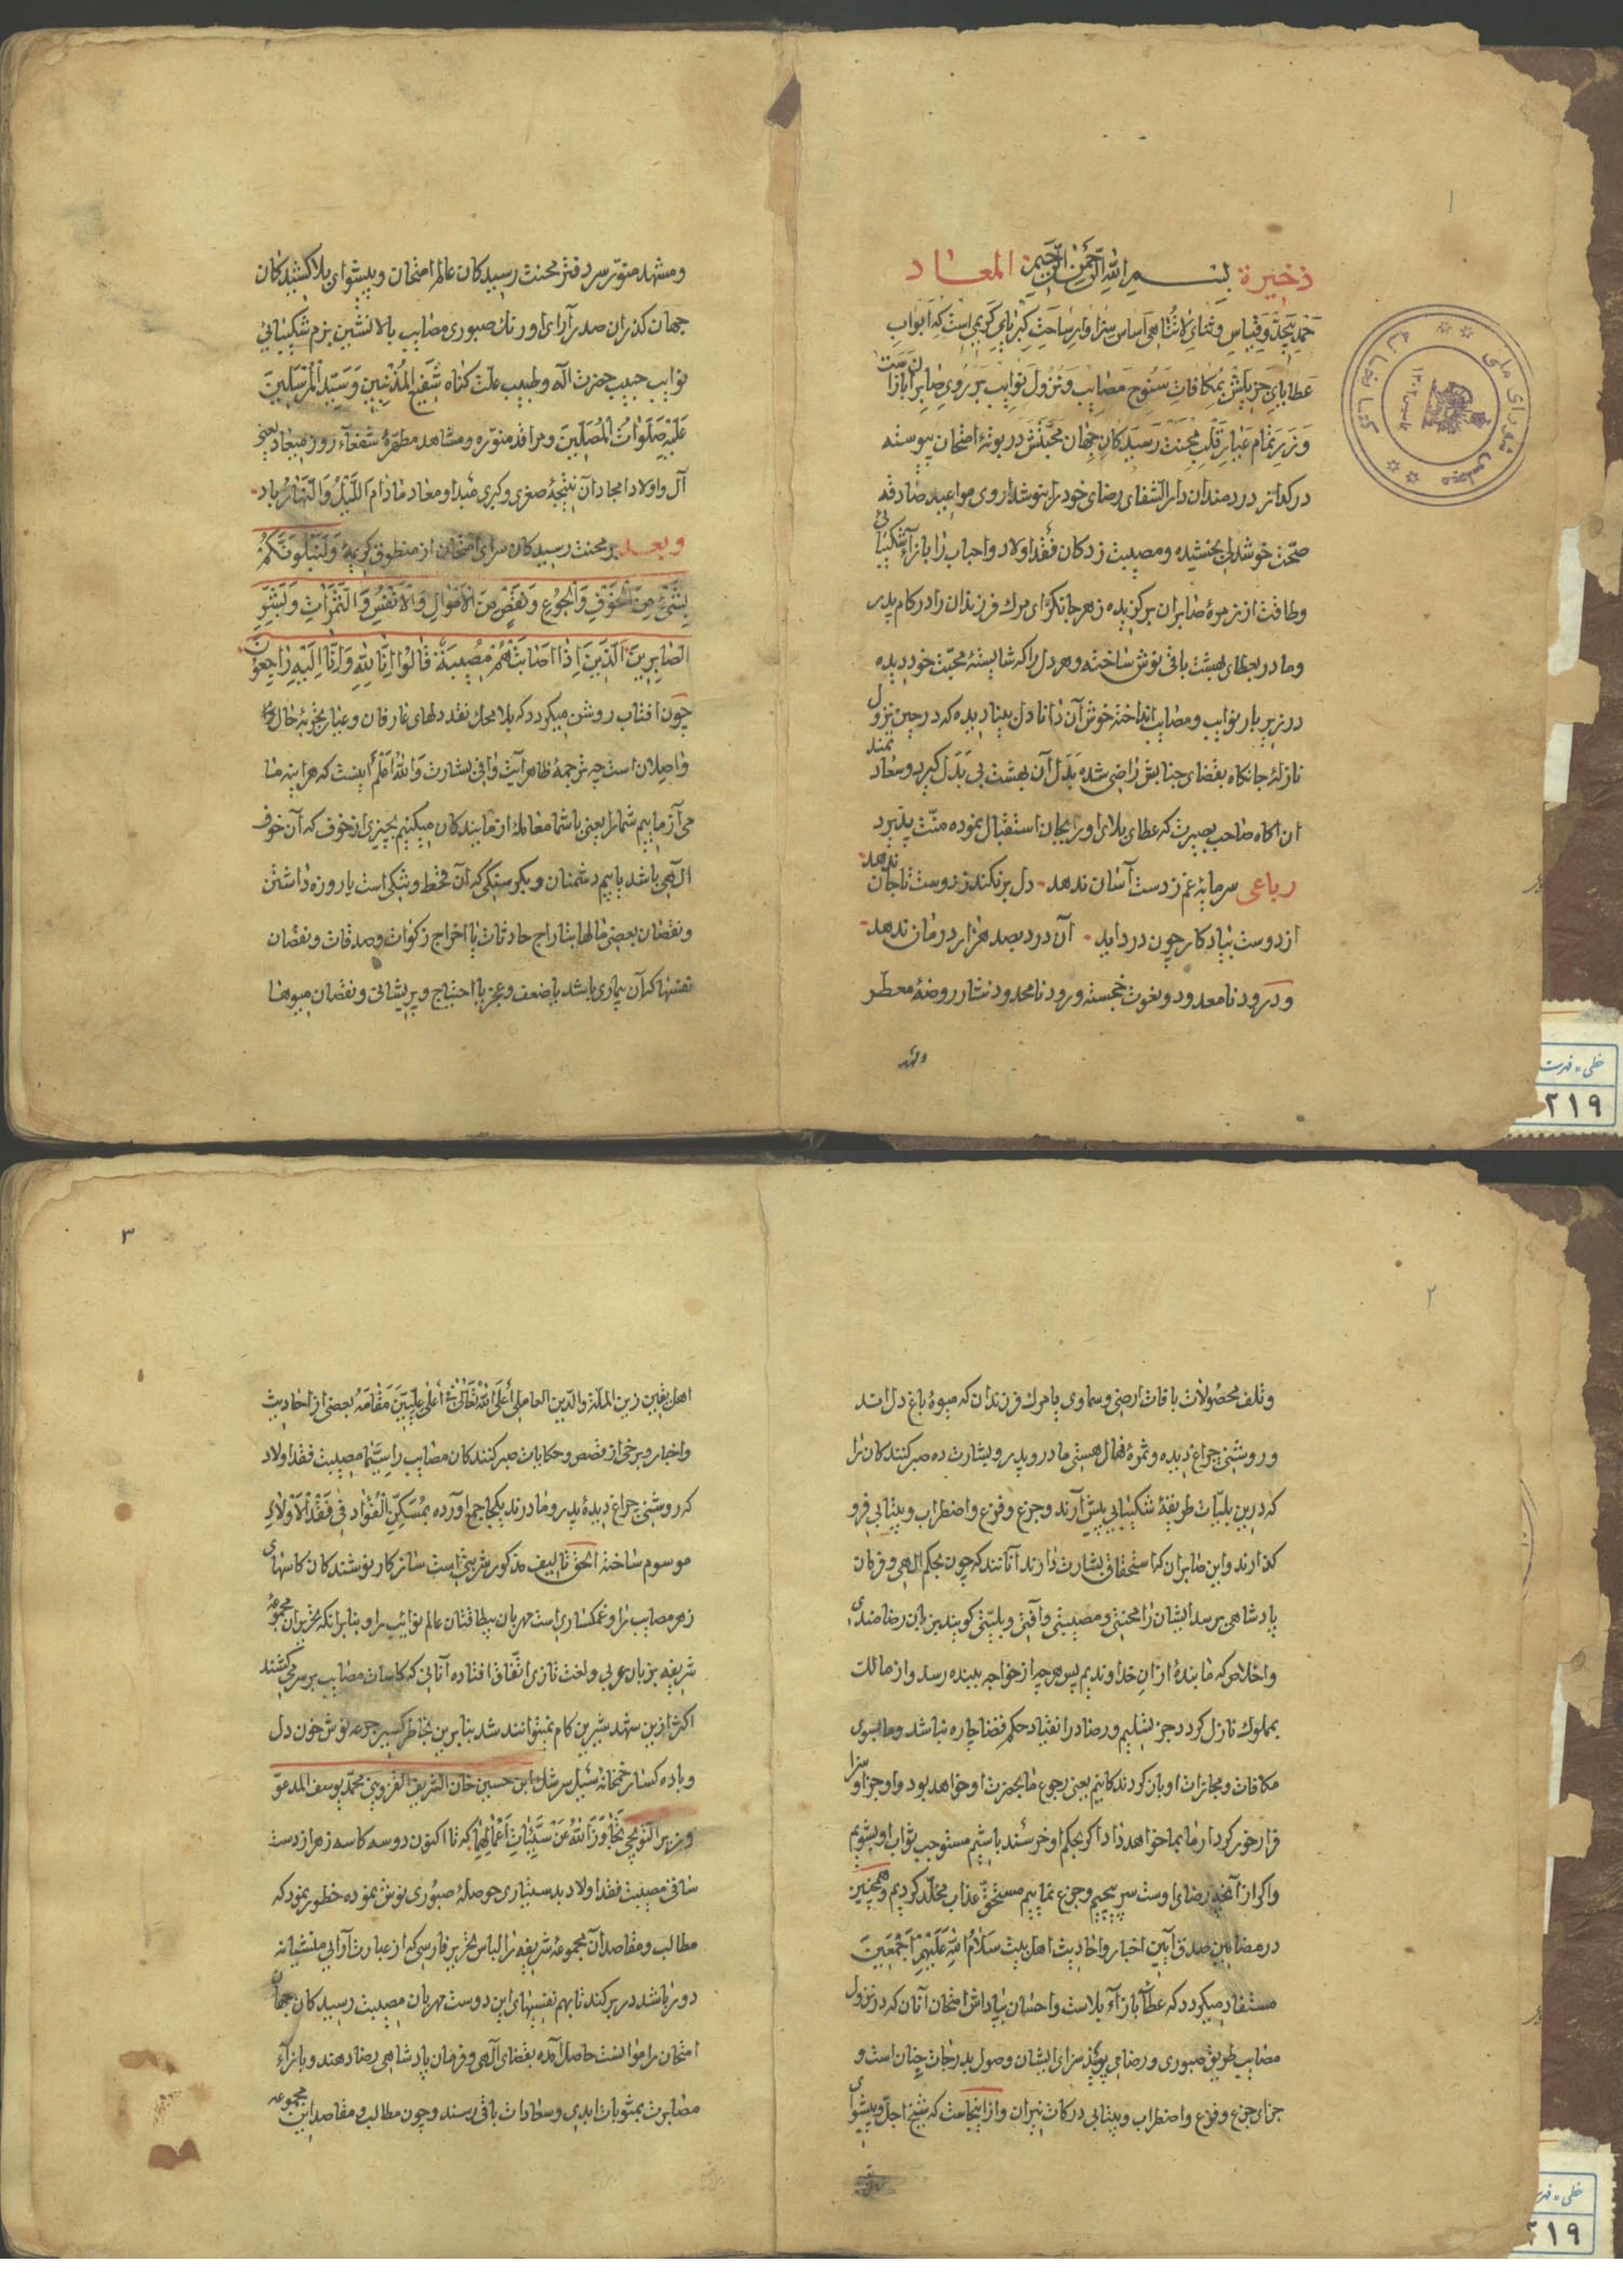 ذخيرة بسم الله الرحمن الرحيم المعاد
حمد بیحد و قیاس و ثنای لا تتناهی اساس سزاوار ساحت کبریای کریمی است که ابواب
عطایای جزیلش بمکافات سنوح مصایب و نزول نوایب بر روی صابران بازاست
و زر تمام عیار قلب محنت رسیدکان جهان محبتش در بوتهٔ امتحان پیوسته
در کداز دردمندان دارالشفای رضای خود را بنوشداروی مواعید صادقه
صحت خوشدلی بخشیده و مصیبت زدکان فقد اولاد و احباب را بازاء شکیبائی
و طاقت از زمرهٔ صابران برکزیده زهر جانکزای مرك فرزندان را در کام پدر
و مادر بعطای بهشت باقی نوش ساخته و هر دل را که شایستهٔ محبت خود دیده
در زیر بار نوایب و مصایب انداخته خوش آن دانا دل بینا دیده که در حین نزول
نازلهٔ جانکاه بقضای جنابش راضی شده بدل آن بهشت بی بدل کیرد و سعادتمند
ان اکاه صاحب بصیرت که عطای بلای او را بجان استقبال نموده منت پذیرد
رباعی سرمایهٔ غم ز دست آسان ندهد دل بر نکند ز دوست تا جان ندهد
از دوست بیادکار چون درد اید آن درد بصد هزار درمان ندهد
و درود نامعدود و نعوت خجسته ورود نامحدود نثار روضهٔ معطر
ومشهد
و مشهد منور سر دفتر محنت رسیدکان عالم امتحان و پیشوای بلا کشیدکان
جهان کذران صدرآرای اورنك صبوری مصایب بالانشین بزم شکیبائی
نوایب حبیب حضرت اله و طبیب علت کناه شفیع المذنبین و سید المرسلین
علیه صلوات المصلین و مراقد منوره و مشاهد مطهرهٔ شفعآء روز میعاد یعنی
آل و اولاد امجاد آن نتیجهٔ صغری و کبری مبدا و معاد مادام اللیل والنهار باد
و بعد بر محنت رسیدکان سرای امتحان از منطوق کریمهٔ وَلَنَبْلُوَنَّكُمْ
بِشَیْءٍ مِنَ الْخَوْفِ وَالْجُوعِ وَنَقْصٍ مِنَ الْاَمْوَالِ وَالْاَنْفُسِ وَالثَّمَرَاتِ وَبَشِّرِ
الصَّابِرِینَ الَّذِینَ اِذَا اَصَابَتْهُمْ مُصِیبَةٌ قَالُوا اِنَّا لِلّهِ وَاِنَّا اِلَیْهِ رَاجِعُونَ
چون افتاب روشن میکردد که بلا محك نقد دلهای عارفان و عیار تجربهٔ حال
واصلان است چه ترجمهٔ ظاهر آیت وافی بشارت والله اعلم اینست که هراینه ما
می آزماییم شما را یعنی با شما معاملهٔ ازمایندکان میکنیم بچیزی از خوف که آن خوف
الهی باشد یا بیم دشمنان و بکرسنکی که آن قحط و تنکی است یا روزه داشتن
و نقصان بعضی مالها بتاراج حادثات یا اخراج زکوات و صدقات و نقصان
نفسها که آن بیماری باشد یا ضعف و عجز یا احتیاج و پریشانی و نقصان میوها
۲
و تلف محصولات بافات ارضی و سماوی یا مرك فرزندان که میوهٔ باغ دل اند
و روشنی چراغ دیده و ثمرهٔ نهال هستی مادر و پدر و بشارت ده صبر کنندکان را
که درین بلیات طریقهٔ شکیبایی پیش آرند و جزع و فزع و اضطراب و بیتابی فرو
کذارند و این صابران که استحقاق بشارت دارند آنانند که چون بحکم الهی و فرمان
پادشاهی برسد ایشان را محنتی و مصیبتی و آفتی و بلیتی کویند بزبان رضامندی
و اخلاص که ما بندهٔ ازان خداوندیم پس هرچه از خواجه ببنده رسد و از مالك
بمملوك نازل کردد جز تسلیم و رضا در انقیاد حکم قضا چاره نباشد و ما بسوی
مکافات و مجازات او بازکردندکانیم یعنی رجوع ما بحضرت او خواهد بود و او جزا و سزا
فراخور کردار ما بما خواهد داد اکر بحکم او خرسند باشیم مستوجب ثواب او شویم
و اکر از آنچه رضای اوست سر پیچیم و جزع نماییم مستحق عذاب مخلد کردیم و همچنین
در مضامین صدق آیین اخبار و احادیث اهل بیت سلام الله علیهم اجمعین
مستفاد میکردد که عطا بازآء بلاست و احسان پاداش امتحان آنان که در نزول
مصایب طریق صبوری و رضا می پویند سزای ایشان وصول بدرجات جنان است و
جزای جزع و فزع و اضطراب و بیتابی درکات نیران و ازاینجاست که شیخ اجل و پیشوای
۳
اهل یقین زین الملة والدین العاملی أعلی الله تعالی فی أعلی علیین مقامه بعضی از احادیث
و اخبار و برخی از قصص و حکایات صبر کنندکان مصایب را سیما مصیبت فقد اولاد
که روشنی چراغ دیدهٔ پدر و مادرند یکجا جمع آورده بمسکن الفؤاد فی فقد الاولاد
موسوم ساخته الحق تالیف مذکور شربتی است سازکار نوشندکان کاسهای
زهر مصایب را و غمکساری است مهربان بیطاقتان عالم نوائب را و بنابرانکه تحریر ان مجموعهٔ
شریفه بزبان عربی و لغت تازی اتفاق افتاده آنانی که کاسات مصایب بر سر می کشند
اکثر ازین شهد شیرین کام نمیتوانند شد بنابرین بخاطر کسیر جرعه نوش خون دل
و باده کسار خمخانهٔ سئیل سرشك ابن حسین خان الشریف القزوینی محمد یوسف المدعو
تجاوز الله عن سیئات أعمالهما که تا اکنون دو سه کاسه زهر از دست
ساقی مصیبت فقد اولاد بدستیاری حوصلهٔ صبوری نوش نموده خطور نمود که
مطالب و مقاصد آن مجموعهٔ شریفه را لباس تحریر فارسی که از عبارت آرایی منشیانه
دور باشد در بر کند تا بهم نفسیهای این دوست مهربان مصیبت رسیدکان جهان
امتحان را موانست حاصل آمده بقضای الهی و فرمان پادشاهی رضا دهند و بازآء
مصابرت بمثوبات ابدی و سعادات باقی رسند و چون مطالب و مقاصد این مجموعه
خطی - فهرست
۲۱۹